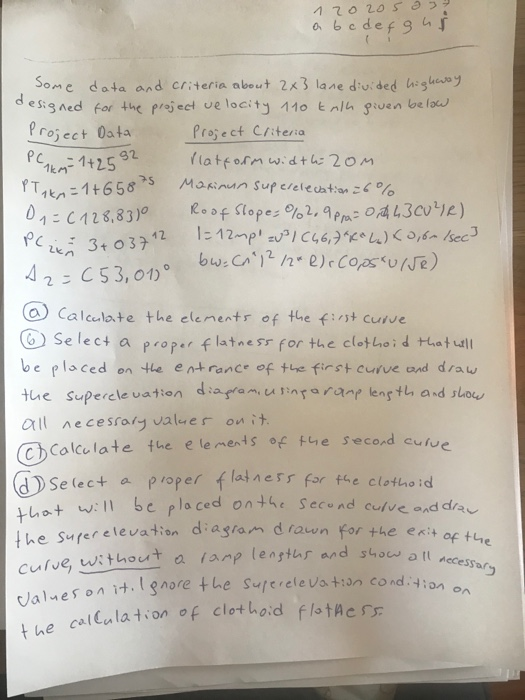 1 2 0 2 0 5 0 3 7
a b c d e f g h j
Some data and criteria about 2x3 lane divided highway
designed for the project velocity 110 km/h given below
Project Data Project Criteria
PC1km = 1+25 92 Platform width = 20m
PT1km = 1+658 75 Maximum superelevation = 6%
D1 = (128,83)° Roof Slope = %2, q
PC2km = 3+037 12 l = 12m p' = v³ / (46,7*R*Ls) < 0,6m/sec³
Δ2 = (53,01)° bw =
(a) Calculate the elements of the first curve
(b) Select a proper flatness for the clothoid that will
be placed on the entrance of the first curve and draw
the superelevation diagram, using a ramp length and show
all necessary values on it.
(c) Calculate the elements of the second curve
(d) Select a proper flatness for the clothoid
that will be placed on the second curve and draw
the superelevation diagram drawn for the exit of the
curve, without a ramp lengths and show all necessary
values on it. Ignore the superelevation condition on
the calculation of clothoid flatness.